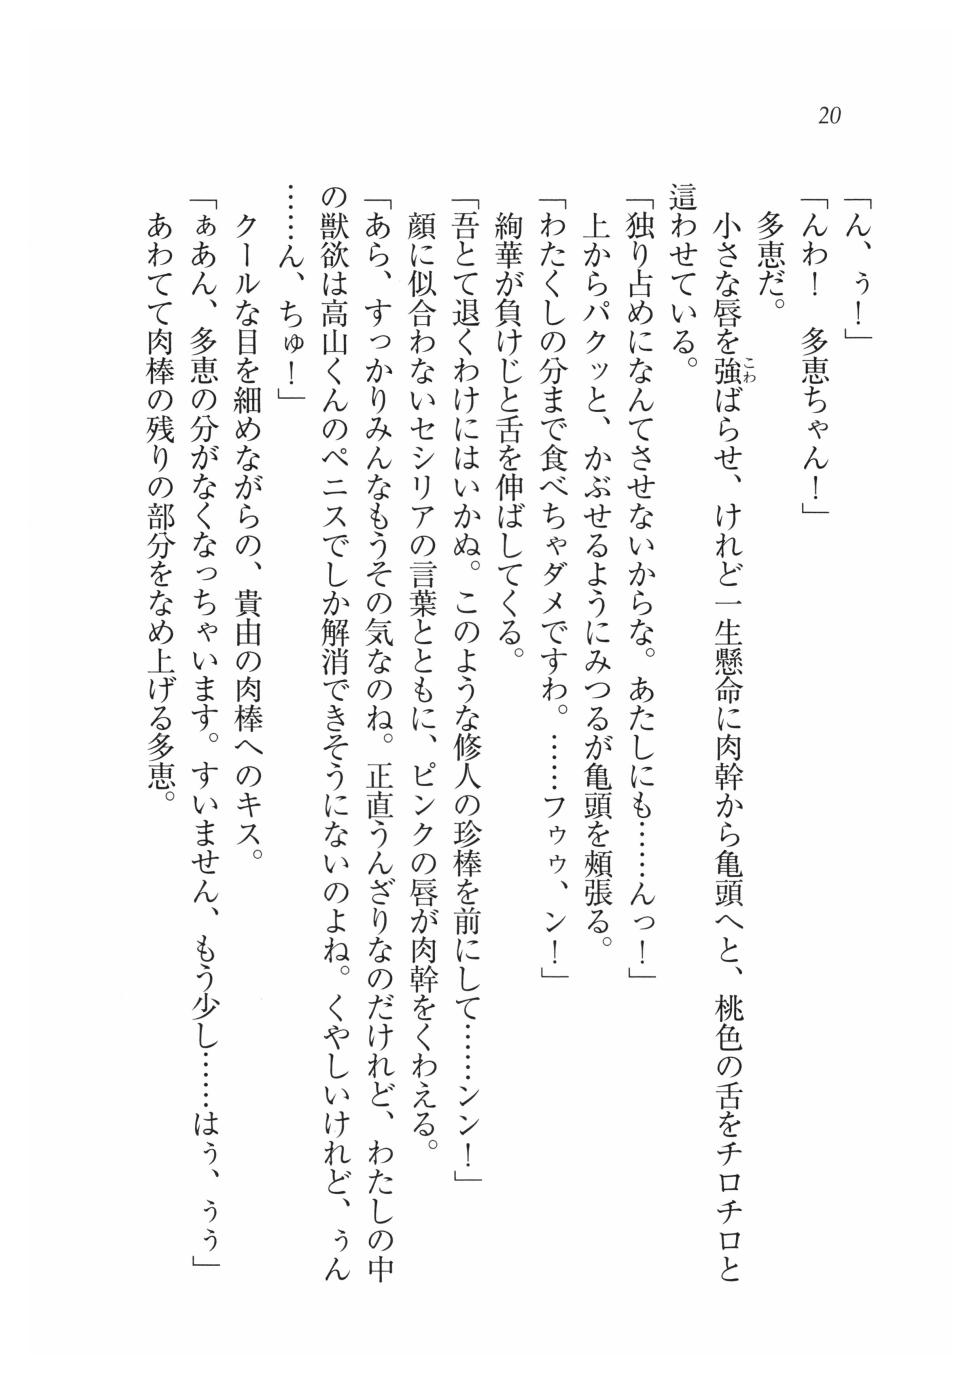 20
「ん、ぅ！」
「んわ！　多恵ちゃん！」
多恵だ。
小さな唇を強こわばらせ、けれど一生懸命に肉幹から亀頭へと、桃色の舌をチロチロと
這わせている。
「独り占めになんてさせないからな。あたしにも……んっ！」
上からパクッと、かぶせるようにみつるが亀頭を頬張る。
「わたくしの分まで食べちゃダメですわ。……フゥゥ、ン！」
絢華が負けじと舌を伸ばしてくる。
「吾とて退くわけにはいかぬ。このような修人の珍棒を前にして……ンン！」
顔に似合わないセシリアの言葉とともに、ピンクの唇が肉幹をくわえる。
「あら、すっかりみんなもうその気なのね。正直うんざりなのだけれど、わたしの中
の獣欲は高山くんのペニスでしか解消できそうにないのよね。くやしいけれど、ぅん
……ん、ちゅ！」
クールな目を細めながらの、貴由の肉棒へのキス。
「ぁあん、多恵の分がなくなっちゃいます。すいません、もう少し……はぅ、ぅぅ」
あわてて肉棒の残りの部分をなめ上げる多恵。